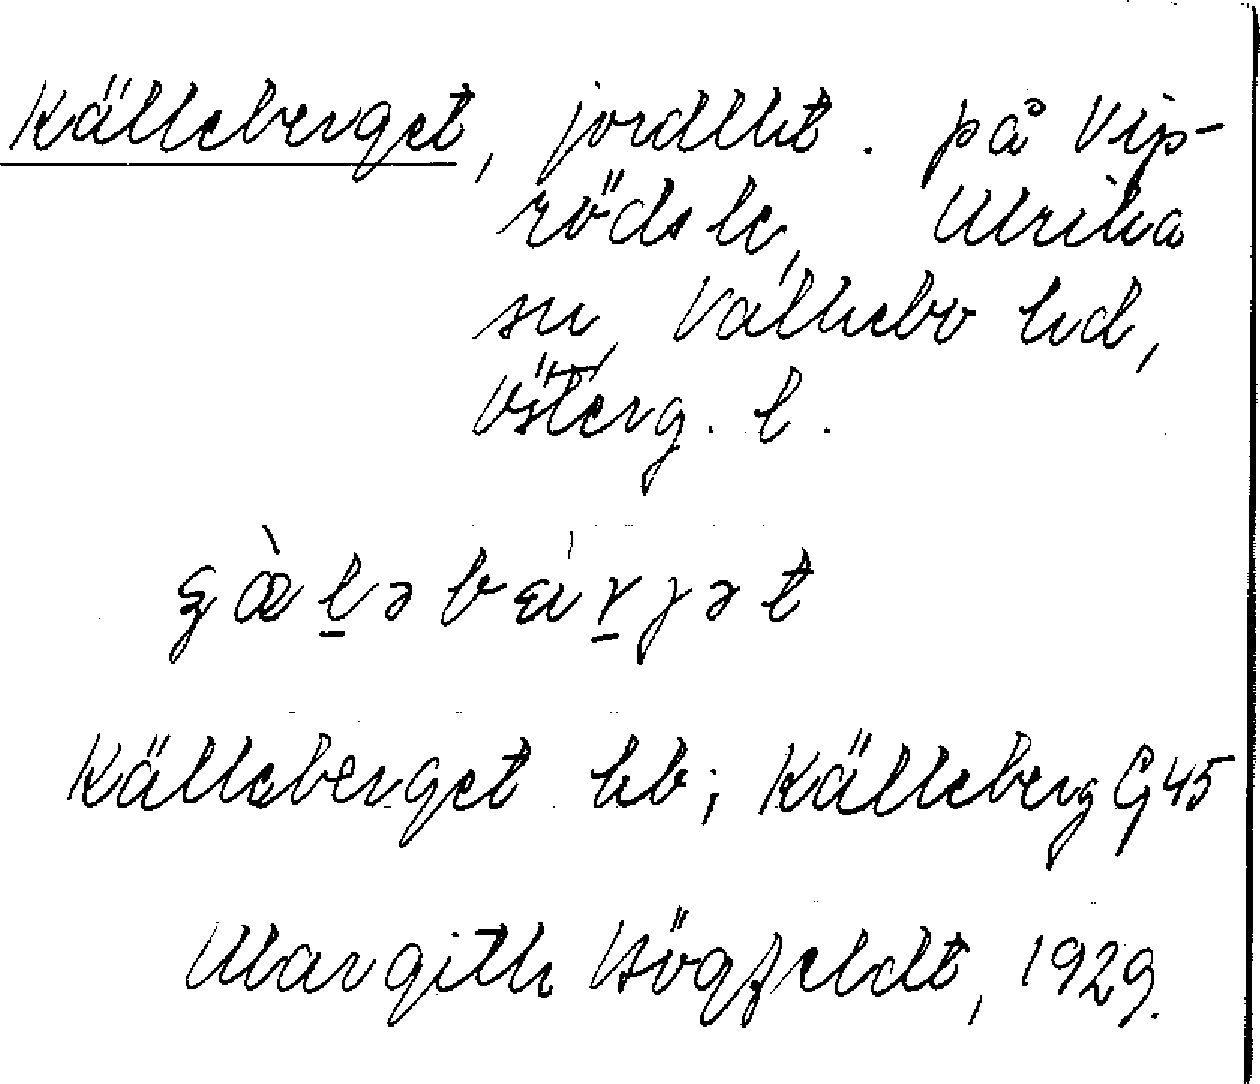 Källeberget, jordlht. på Vip-
röds le, Ulrika
sn, Valkebo hd,
Österg. l.
Källeberget hb; Källeberg G45
Margith Högfeldt, 1929.